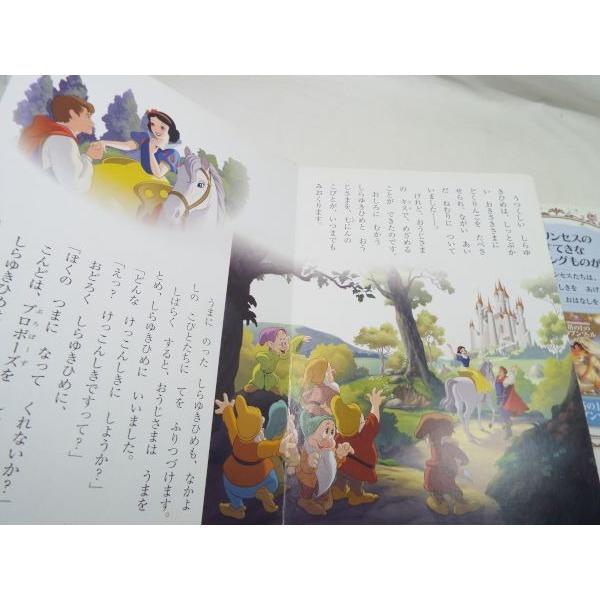 うつくしい しらゆ
きひめは、しっとぶか
い おきさきさまに
どくりんごを たべさ
せられ、ながい あい
だ ねむりに ついて
いました――。
けれど、おうじさま
の キスで、めざめる
ことが できたのです。
おしろに むかう
しらゆきひめと おう
じさまを、七にんの
こびとが、いつまでも
みおくります。
うまに のった しらゆきひめも、なかよ
しの こびとたちに てを ふりつづけます。
しばらく すると、おうじさまは うまを
とめ、しらゆきひめに いいました。
「どんな けっこんしきに しようか?」
「えっ? けっこんしきですって?」
おどろく しらゆきひめに、
「ぼくの つまに なって くれないか?」
こんどは、プロポーズを
しらゆきひめ
リンセスの
てきな
ングものが
ンセスたちは、
しきを あげ
おはなしを